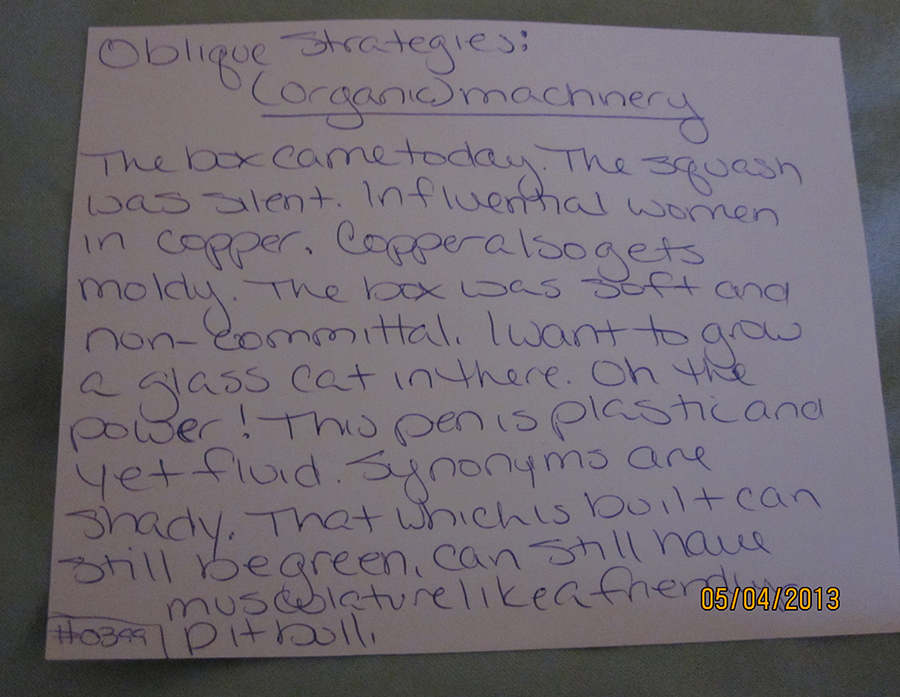 Oblique Strategies:
(organic) machinery
The box came today. The squash
was silent. Influential women
in copper. Copper also gets
moldy. The box was soft and
non-committal. I want to grow
a glass cat in there. Oh the
power! This pen is plastic and
yet fluid. Synonyms are
shady. That which is built can
still be green, can still have
musculature like a friendly
pitbull.
#0399
05/04/2013